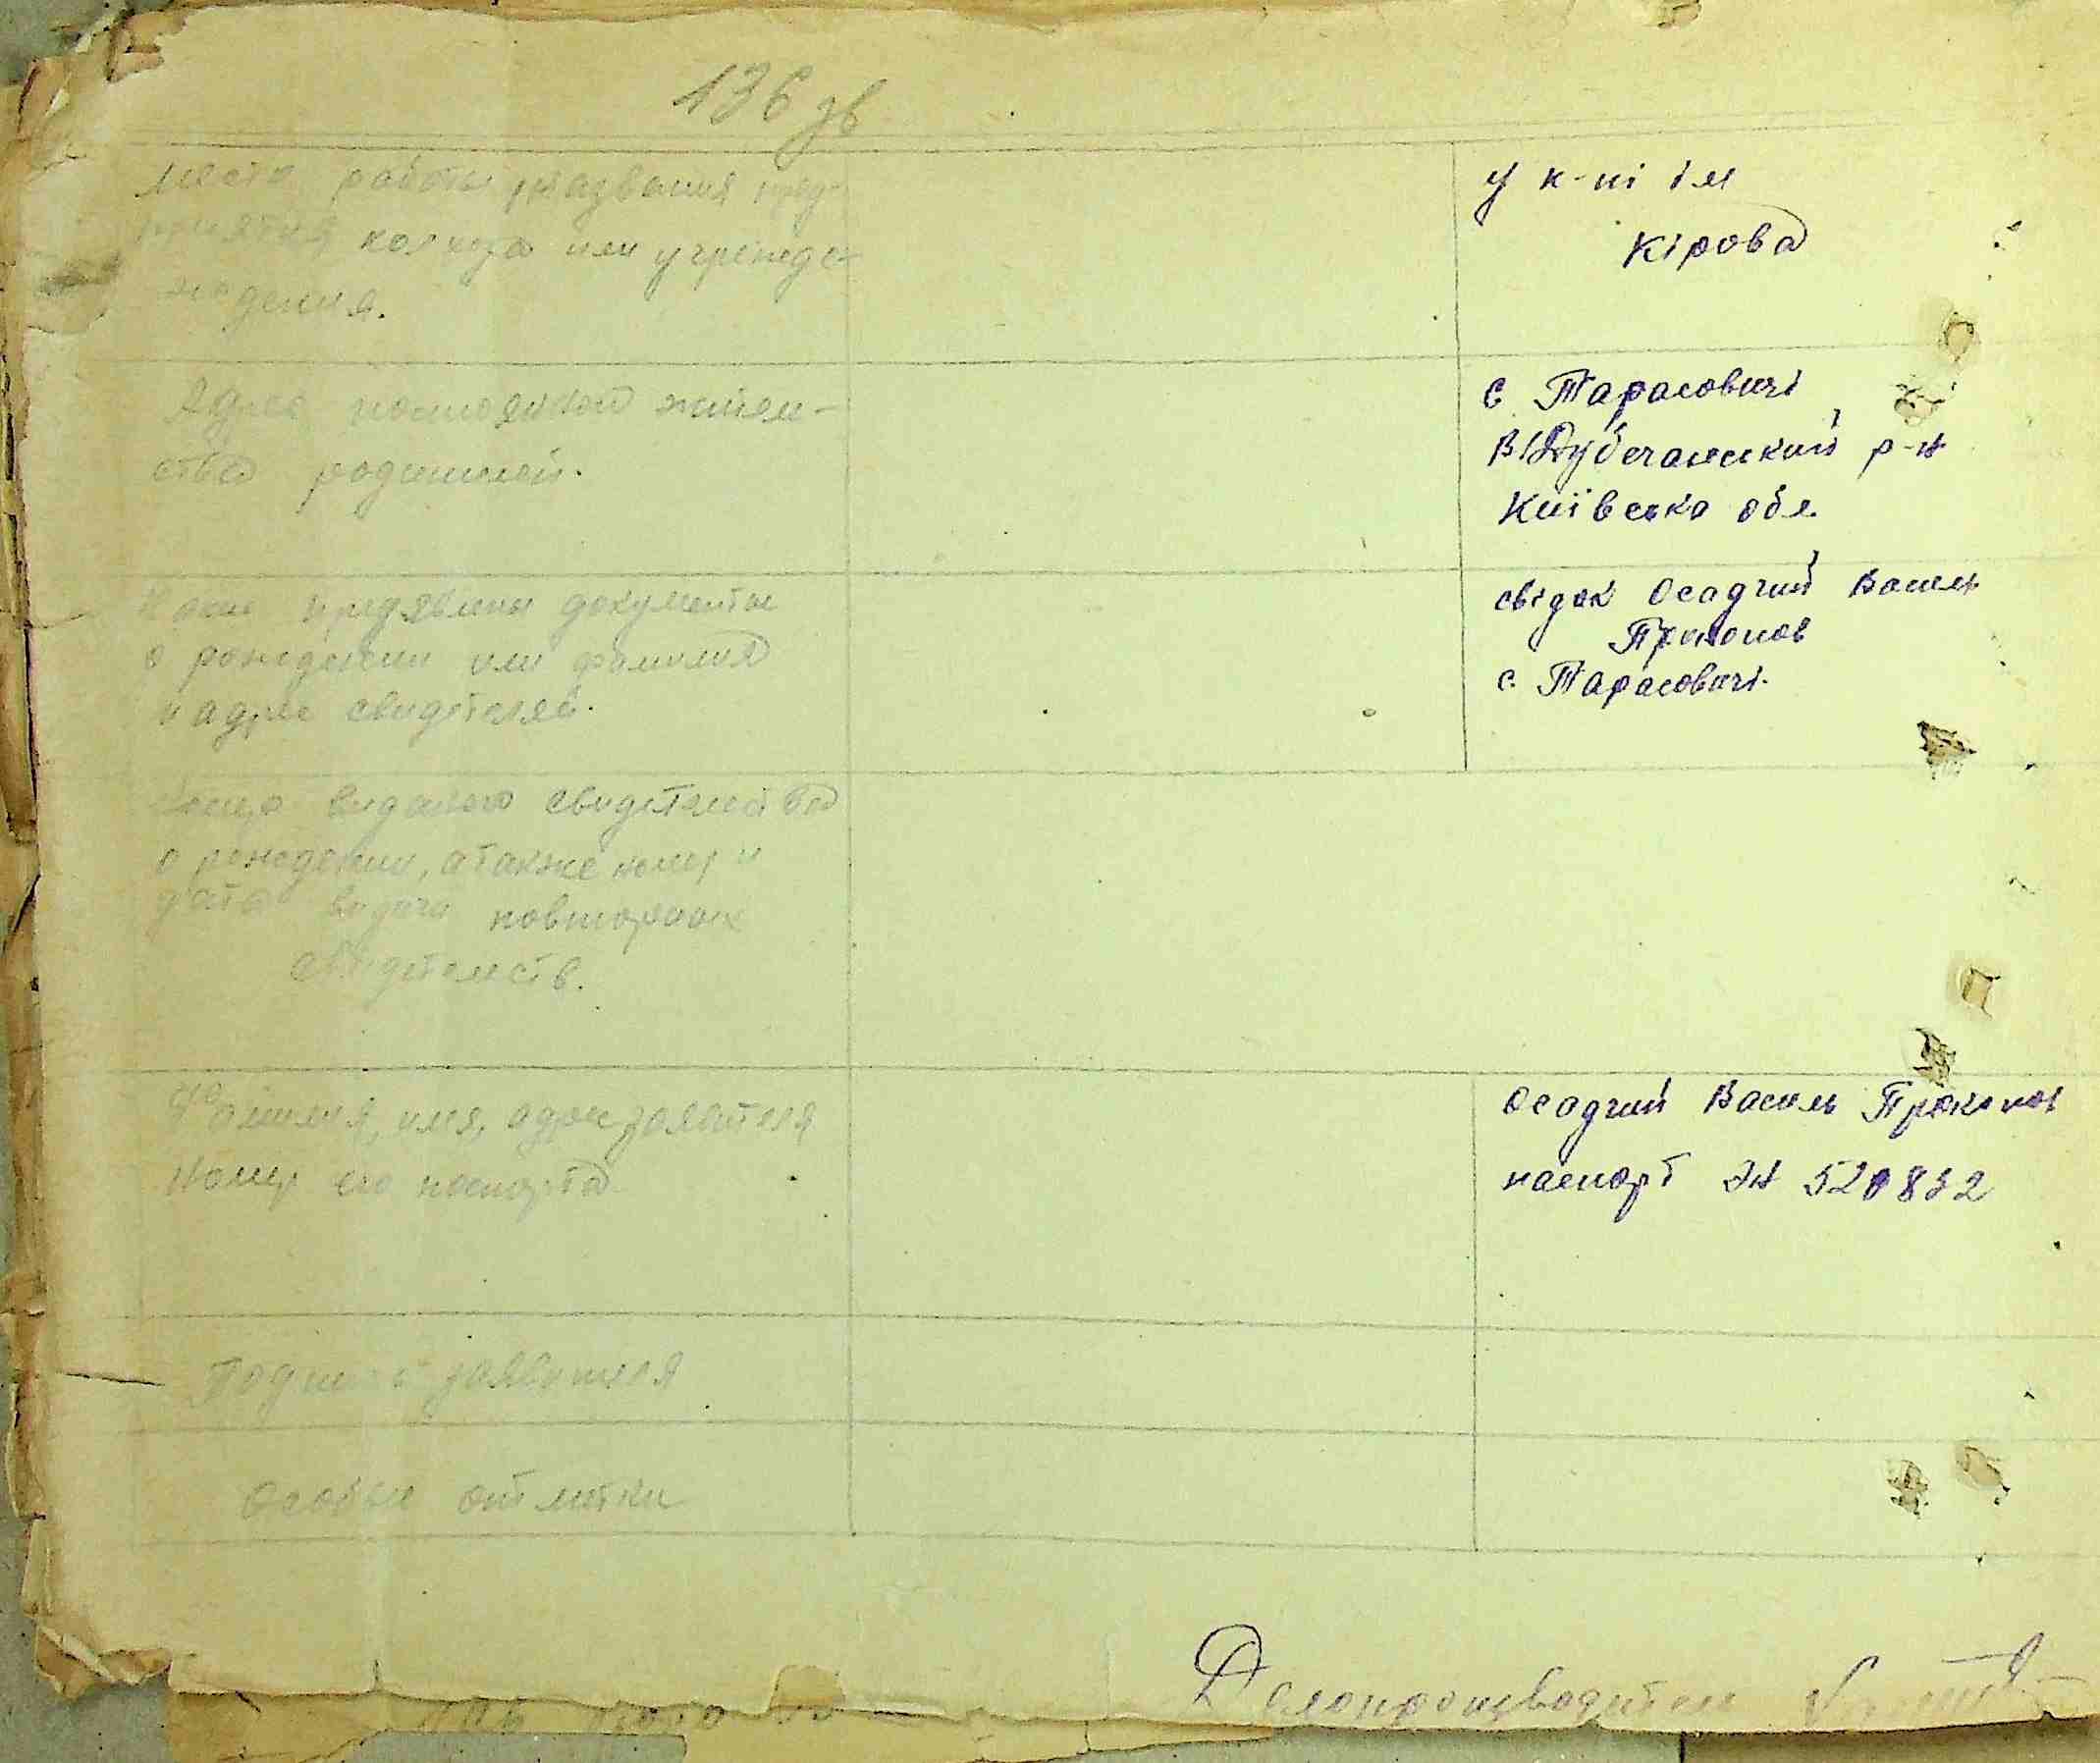 136 зв
место работы название пред-
приятия колхоза или учрежде-
ждения.
у к-пі ім
Кірова
Адрес постоянной житель-
ства родителей.
с Тарасовичі
В/Дубечанський р-н
Київська обл.
предявлены документы
о рождении или фамилия
и адрес свидетелей.
свідок Осадчий Василь
Прокопов
с. Тарасовичі.
видано свидетельство
о рождении, а также номер и
дата видачи повторных
свидетельств.
Фамилия, имя, адрес заявителя
Номер его паспорта
Осадчий Василь Прокопов
паспорт ЭН 520832
Подпись заявителя
Особые отметки
Делопроизводитель